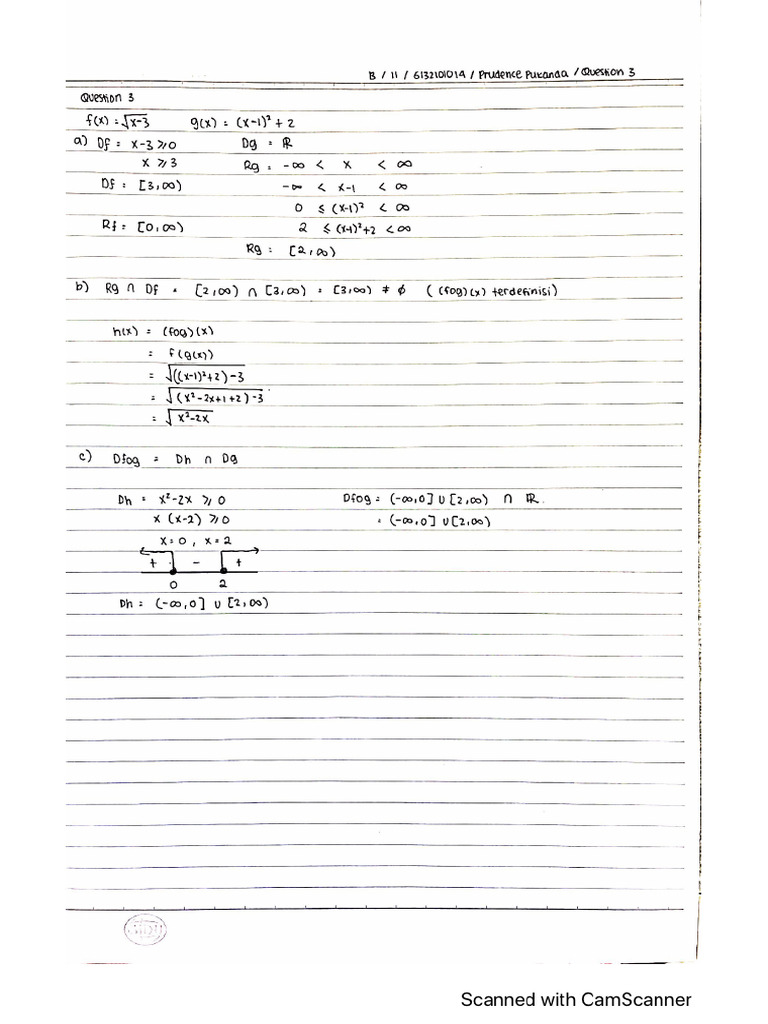 B / 11 / 6132101014 / Prudence Pukanda / Question 3
Question 3
f(x) = √x-3    g(x) = (x-1)² + 2
a) Df = x-3 ≥ 0    Dg = ℝ
x ≥ 3    Rg = -∞ < x < ∞
Df = [3,∞)    -∞ < x-1 < ∞
0 ≤ (x-1)² < ∞
Rf = [0,∞)    2 ≤ (x-1)²+2 < ∞
Rg = [2,∞)
b) Rg ∩ Df = [2,∞) ∩ [3,∞) = [3,∞) ≠ ∅ ( (fog)(x) terdefinisi)
h(x) = (fog)(x)
= f(g(x))
= √((x-1)²+2)-3
= √(x²-2x+1+2)-3
= √x²-2x
c) Dfog = Dh ∩ Dg
Dh = x²-2x ≥ 0    Dfog = (-∞,0] ∪ [2,∞) ∩ ℝ
x (x-2) ≥ 0    = (-∞,0] ∪ [2,∞)
x=0 , x=2
+ - +
0 2
Dh = (-∞,0] ∪ [2,∞)
SIDU
Scanned with CamScanner